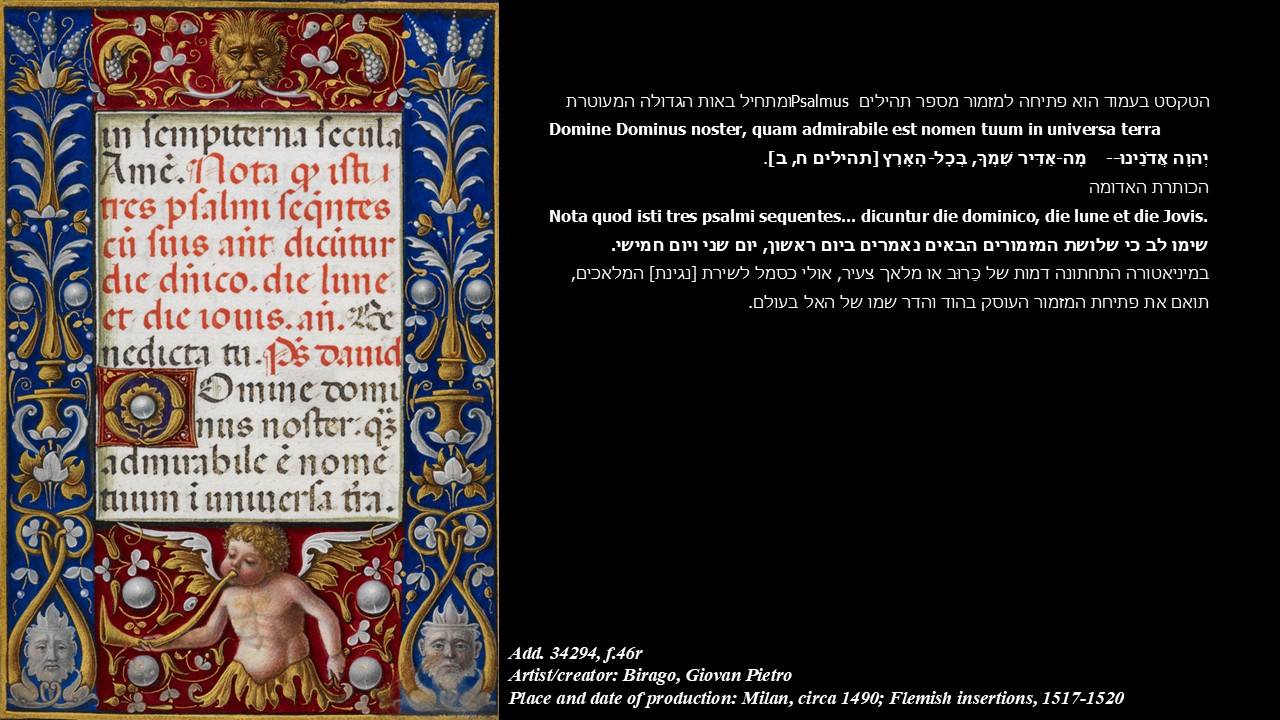 in sempiterna secula
Amē. Nota ꝙ isti
tres psalmi seq̄ntes
cū suis añt dicūtur
die dñico. die lune
et die iouis. añ. Be
nedicta tu. Ps̄ dauid
Domine domi
nus noster. qȝ̄
admirabile ē nomē
tuum ī uniuersa tr̄a.
הטקסט בעמוד הוא פתיחה למזמור מספר תהילים Psalmusומתחיל באות הגדולה המעוטרת
Domine Dominus noster, quam admirabile est nomen tuum in universa terra
יְהוָה אֲדֹנֵינוּ-- מָה-אַדִּיר שִׁמְךָ, בְּכָל-הָאָרֶץ [תהילים ח, ב].
הכותרת האדומה
Nota quod isti tres psalmi sequentes... dicuntur die dominico, die lune et die Jovis.
שימו לב כי שלושת המזמורים הבאים נאמרים ביום ראשון, יום שני ויום חמישי.
במיניאטורה התחתונה דמות של כַּרוּב או מלאך צעיר, אולי כסמל לשירת [נגינת] המלאכים,
תואם את פתיחת המזמור העוסק בהוד והדר שמו של האל בעולם.
Add. 34294, f.46r
Artist/creator: Birago, Giovan Pietro
Place and date of production: Milan, circa 1490; Flemish insertions, 1517-1520